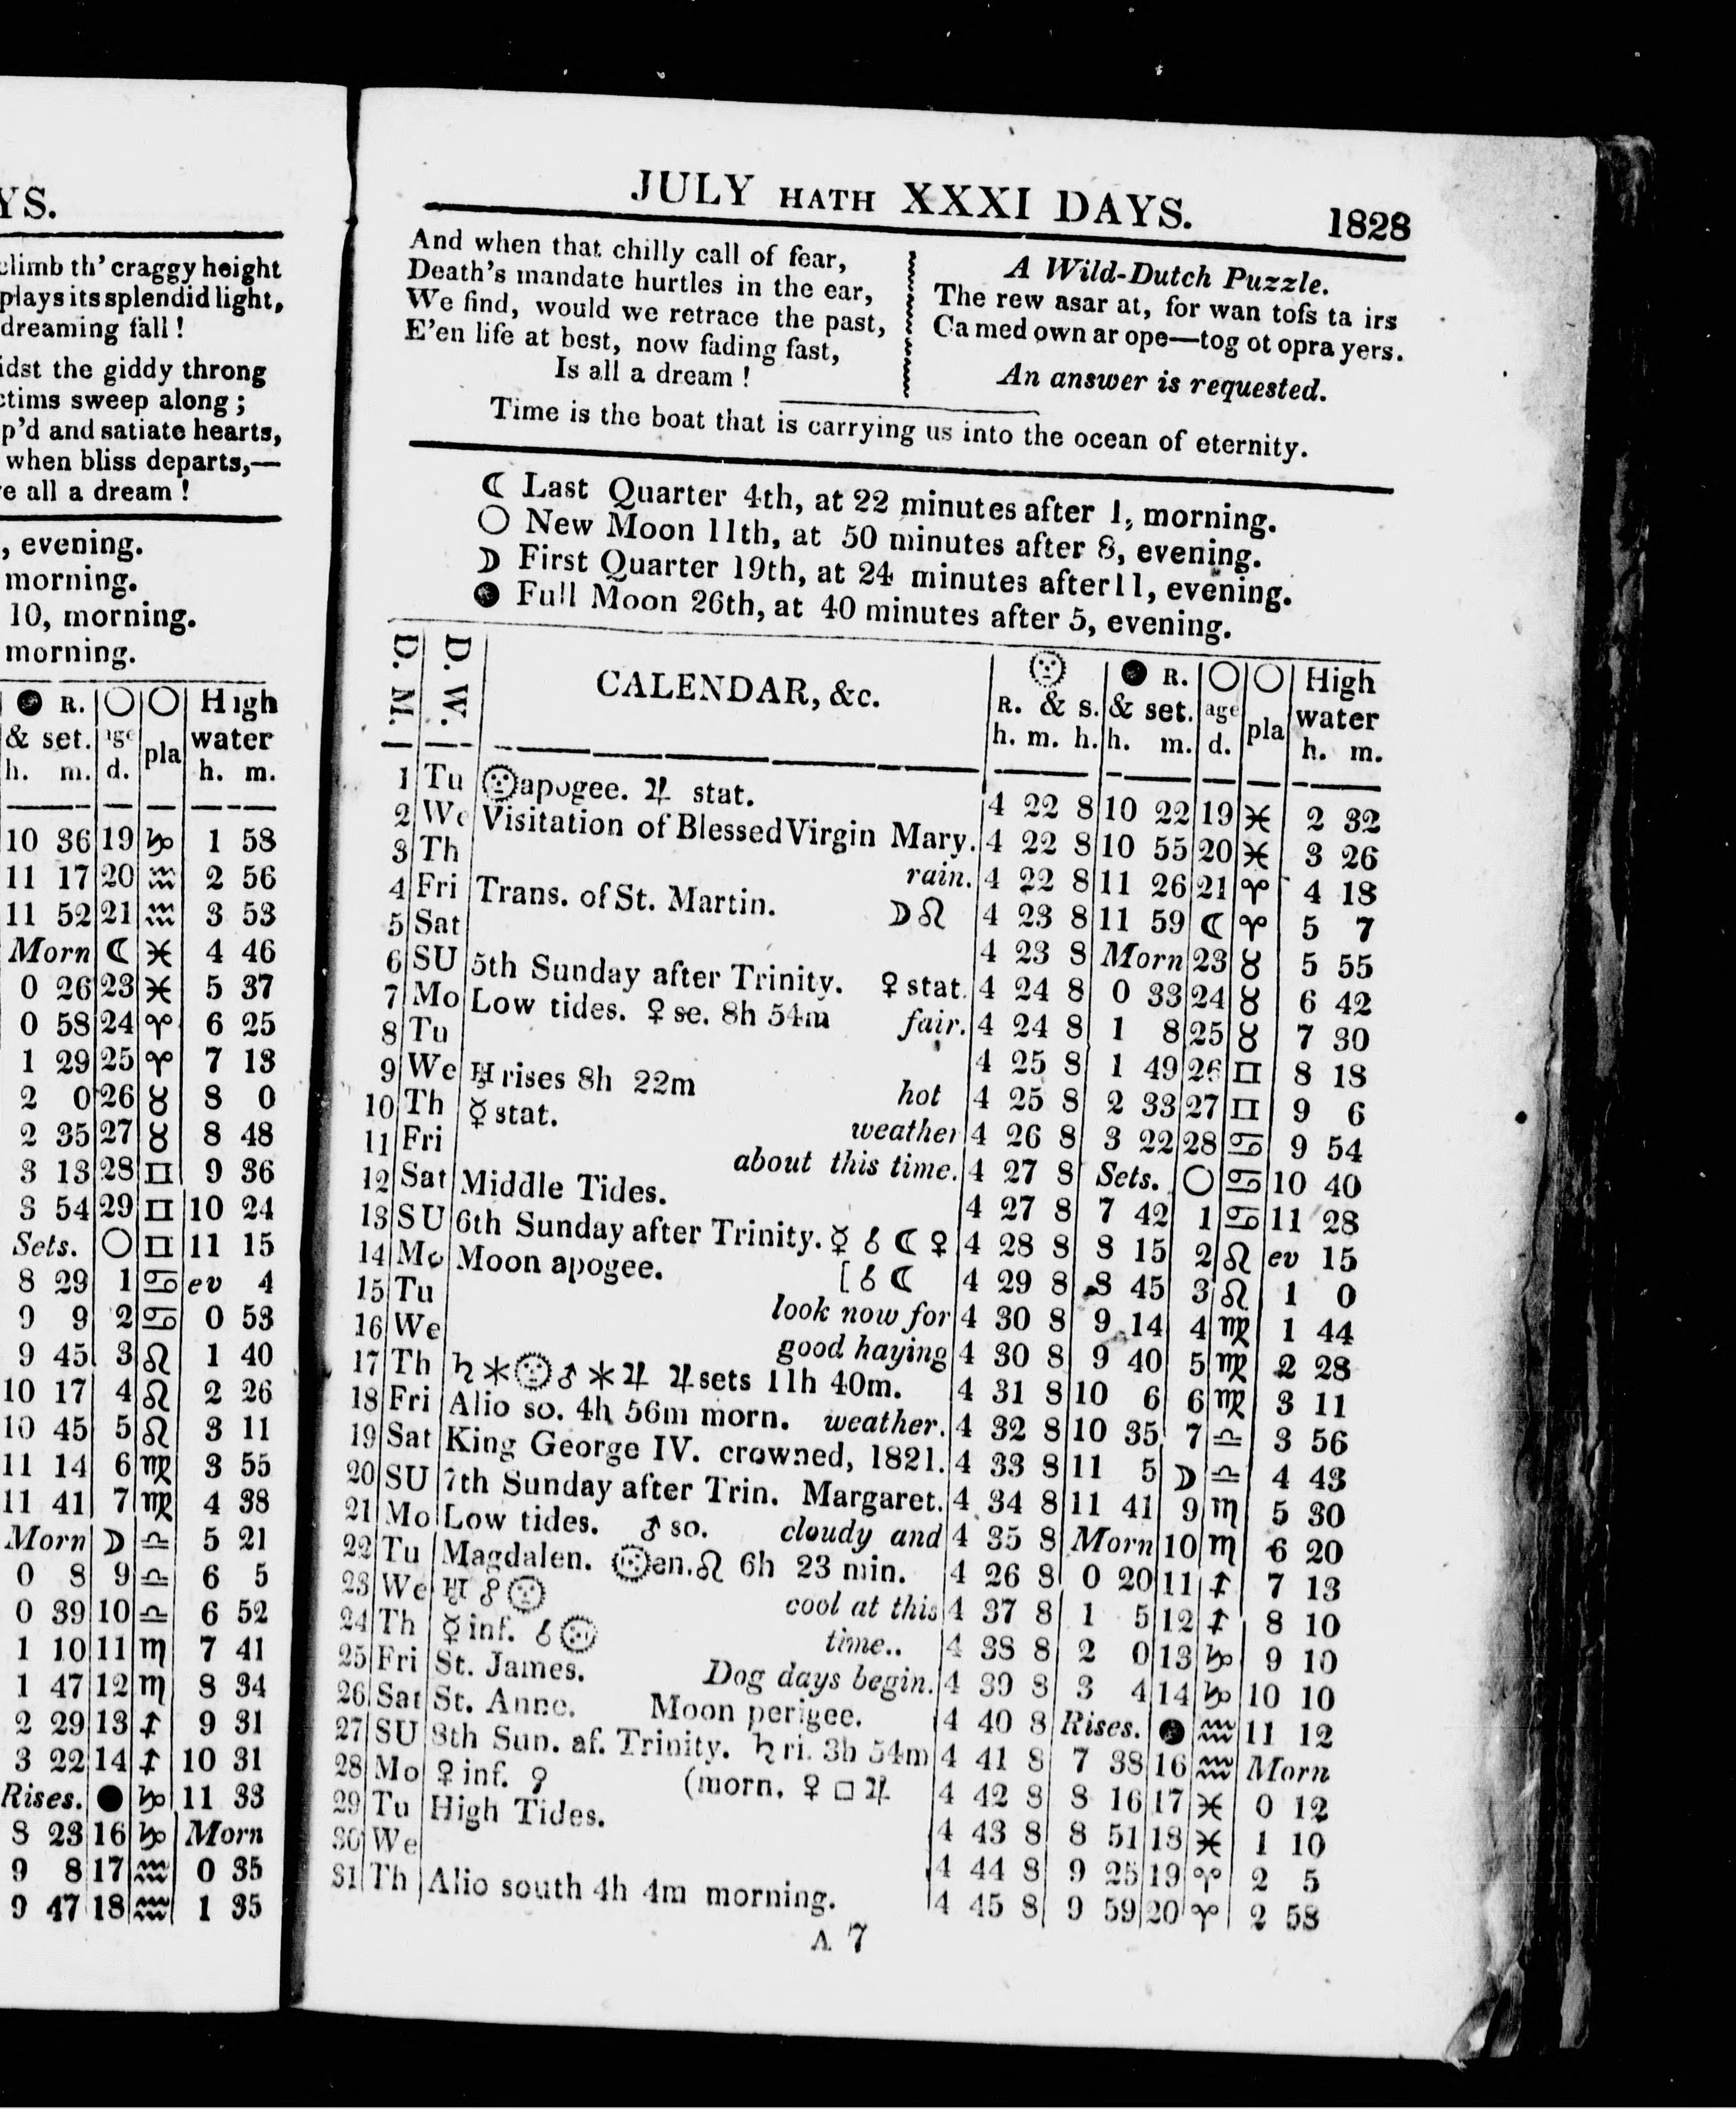 YS.
climb th' craggy height
plays its splendid light,
dreaming fall !
idst the giddy throng
ctims sweep along ;
p'd and satiate hearts,
when bliss departs,—
e all a dream !
, evening.
morning.
10, morning.
morning.
● R. ○ ○ High
& set. age pla water
h. m. d. h. m.
10 36 19 ♑ 1 58
11 17 20 ♒ 2 56
11 52 21 ♒ 3 53
Morn ☾ ♓ 4 46
0 26 23 ♓ 5 37
0 58 24 ♈ 6 25
1 29 25 ♈ 7 13
2 0 26 ♉ 8 0
2 35 27 ♉ 8 48
3 13 28 ♊ 9 36
3 54 29 ♊ 10 24
Sets. ○ ♊ 11 15
8 29 1 ♋ ev 4
9 9 2 ♋ 0 53
9 45 3 ♌ 1 40
10 17 4 ♌ 2 26
10 45 5 ♌ 3 11
11 14 6 ♍ 3 55
11 41 7 ♍ 4 38
Morn ☽ ♎ 5 21
0 8 9 ♎ 6 5
0 39 10 ♎ 6 52
1 10 11 ♏ 7 41
1 47 12 ♏ 8 34
2 29 13 ♐ 9 31
3 22 14 ♐ 10 31
Rises. ● ♑ 11 33
8 23 16 ♑ Morn
9 8 17 ♒ 0 35
9 47 18 ♒ 1 35
JULY HATH XXXI DAYS. 1828
And when that chilly call of fear,
Death's mandate hurtles in the ear,
We find, would we retrace the past,
E'en life at best, now fading fast,
Is all a dream !
A Wild-Dutch Puzzle.
The rew asar at, for wan tofs ta irs
Ca med own ar ope—tog ot opra yers.
An answer is requested.
Time is the boat that is carrying us into the ocean of eternity.
☾ Last Quarter 4th, at 22 minutes after 1, morning.
○ New Moon 11th, at 50 minutes after 8, evening.
☽ First Quarter 19th, at 24 minutes after 11, evening.
● Full Moon 26th, at 40 minutes after 5, evening.
D. M. D. W. CALENDAR, &c. ☉ R. & s. ● R. & set. ○ age ○ pla High water
h. m. h. h. m. d. h. m.
1 Tu ☉ apogee. ♃ stat. 4 22 8 10 22 19 ♓ 2 32
2 We Visitation of Blessed Virgin Mary. 4 22 8 10 55 20 ♓ 3 26
3 Th rain. 4 22 8 11 26 21 ♈ 4 18
4 Fri Trans. of St. Martin. ☽ ☊ 4 23 8 11 59 ☾ ♈ 5 7
5 Sat 4 23 8 Morn 23 ♉ 5 55
6 SU 5th Sunday after Trinity. ♀ stat. 4 24 8 0 33 24 ♉ 6 42
7 Mo Low tides. ♀ se. 8h 54m fair. 4 24 8 1 8 25 ♉ 7 30
8 Tu 4 25 8 1 49 26 ♊ 8 18
9 We ♅ rises 8h 22m hot 4 25 8 2 33 27 ♊ 9 6
10 Th ☿ stat. weather 4 26 8 3 22 28 ♋ 9 54
11 Fri about this time. 4 27 8 Sets. ○ ♋ 10 40
12 Sat Middle Tides. 4 27 8 7 42 1 ♋ 11 28
13 SU 6th Sunday after Trinity. ☿ ☌ ☾ ♀ 4 28 8 8 15 2 ♌ ev 15
14 Mo Moon apogee. [☌ ☾ 4 29 8 8 45 3 ♌ 1 0
15 Tu look now for 4 30 8 9 14 4 ♍ 1 44
16 We good haying 4 30 8 9 40 5 ♍ 2 28
17 Th ♄ ⚹ ☉ ♂ ⚹ ♃ ♃ sets 11h 40m. 4 31 8 10 6 6 ♍ 3 11
18 Fri Alio so. 4h 56m morn. weather. 4 32 8 10 35 7 ♎ 3 56
19 Sat King George IV. crowned, 1821. 4 33 8 11 5 ☽ ♎ 4 43
20 SU 7th Sunday after Trin. Margaret. 4 34 8 11 41 9 ♏ 5 30
21 Mo Low tides. ♂ so. cloudy and 4 35 8 Morn 10 ♏ 6 20
22 Tu Magdalen. ☉ en. ♌ 6h 23 min. 4 26 8 0 20 11 ♐ 7 13
23 We ♅ ☍ ☉ cool at this 4 37 8 1 5 12 ♐ 8 10
24 Th ☿ inf. ☌ ☉ time.. 4 38 8 2 0 13 ♑ 9 10
25 Fri St. James. Dog days begin. 4 39 8 3 4 14 ♑ 10 10
26 Sat St. Anne. Moon perigee. 4 40 8 Rises. ● ♒ 11 12
27 SU 8th Sun. af. Trinity. ♄ ri. 3h 54m 4 41 8 7 38 16 ♒ Morn
28 Mo ♀ inf. ♀ (morn. ♀ □ ♃ 4 42 8 8 16 17 ♓ 0 12
29 Tu High Tides. 4 43 8 8 51 18 ♓ 1 10
30 We 4 44 8 9 25 19 ♈ 2 5
31 Th Alio south 4h 4m morning. 4 45 8 9 59 20 ♈ 2 58
A 7